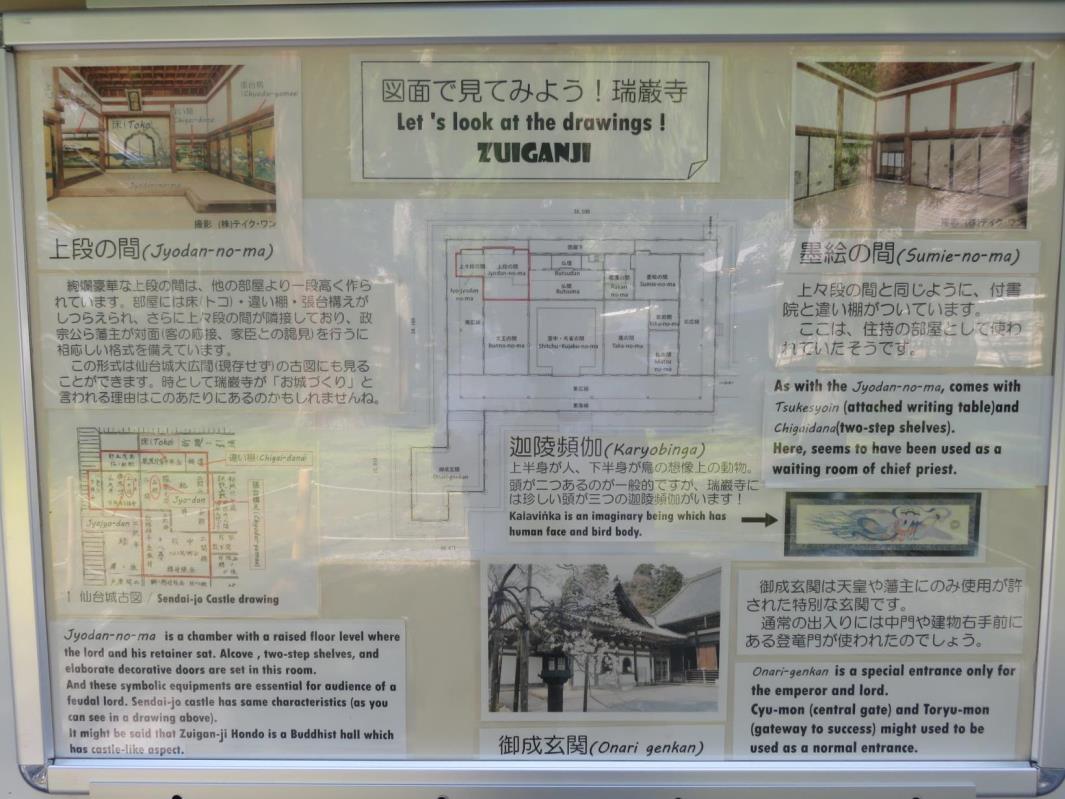 図面で見てみよう！瑞巌寺
Let 's look at the drawings !
ZUIGANJI
床(Toko)
Jyodan-no-ma
撮影 (株)テイク・ワン
上段の間(Jyodan-no-ma)
絢爛豪華な上段の間は、他の部屋より一段高く作ら
れています。部屋には床(トコ)・違い棚・張台構えが
しつらえられ、さらに上々段の間が隣接しており、政
宗公ら藩主が対面(客の応接、家臣との謁見)を行うに
相応しい格式を備えています。
この形式は仙台城大広間(現存せず)の古図にも見る
ことができます。時として瑞巌寺が「お城づくり」と
言われる理由はこのあたりにあるのかもしれませんね。
床(Toko)
違い棚(Chigai-dana)
Jyo-dan
Jyojyo-dan
仙台城古図 / Sendai-jo Castle drawing
Jyodan-no-ma is a chamber with a raised floor level where
the lord and his retainer sat. Alcove , two-step shelves, and
elaborate decorative doors are set in this room.
And these symbolic equipments are essential for audience of a
feudal lord. Sendai-jo castle has same characteristics (as you
can see in a drawing above).
It might be said that Zuigan-ji Hondo is a Buddhist hall which
has castle-like aspect.
上段の間
Jyodan-no-ma
仏壇
Butsudan
仏間
Butsuma
墨絵の間
Sumie-no-ma
御成玄関
Onari-genkan
迦陵頻伽(Karyobinga)
上半身が人、下半身が鳥の想像上の動物。
頭が二つあるのが一般的ですが、瑞巌寺に
は珍しい頭が三つの迦陵頻伽がいます！
Kalaviṅka is an imaginary being which has
human face and bird body.
御成玄関(Onari genkan)
撮影 (株)テイク・ワン
墨絵の間(Sumie-no-ma)
上々段の間と同じように、付書
院と違い棚がついています。
ここは、住持の部屋として使わ
れていたそうです。
As with the Jyodan-no-ma, comes with
Tsukesyoin (attached writing table)and
Chigaidana(two-step shelves).
Here, seems to have been used as a
waiting room of chief priest.
御成玄関は天皇や藩主にのみ使用が許
された特別な玄関です。
通常の出入りには中門や建物右手前に
ある登竜門が使われたのでしょう。
Onari-genkan is a special entrance only for
the emperor and lord.
Cyu-mon (central gate) and Toryu-mon
(gateway to success) might used to be
used as a normal entrance.